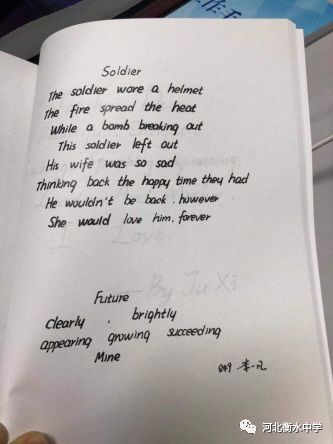 Soldier
The soldier wore a helmet
The fire spread the heat
While a bomb breaking out
This soldier left out
His wife was so sad
Thinking back the happy time they had
He wouldn't be back, however
She would love him, forever
Love
By Ju Xi
Future
Clearly, brightly
appearing growing succeeding
Mine
849 李一凡
河北衡水中学